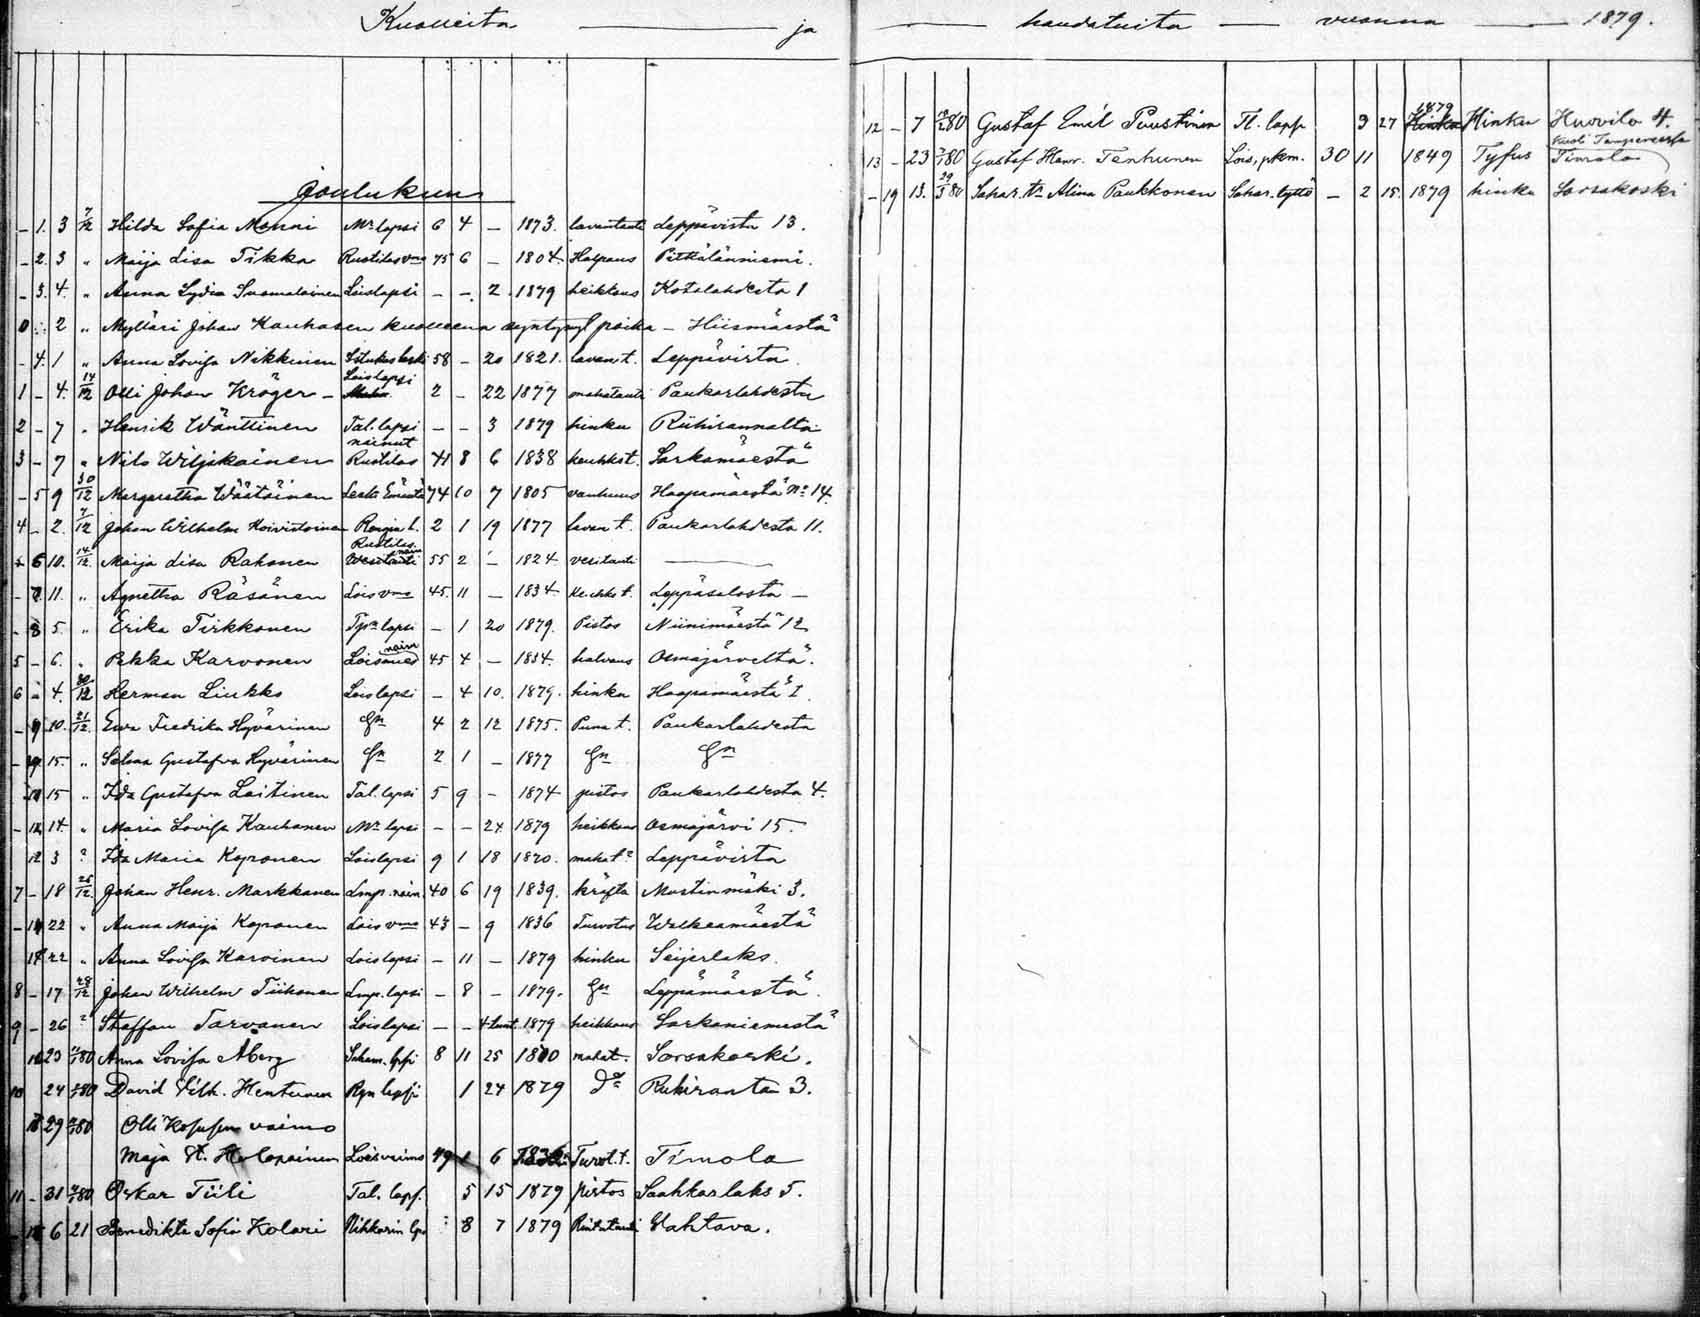 Kuolleita — ja — haudatuita — vuonna — 1879.
Joulukuu
- 1. 3 7/12 Hilda Sofia Monni Mr lapsi 6 4 - 1873. lavantauti Leppävirta 13.
- 2. 3 " Maija Lisa Tikka Rustitas vmo 75 6 - 1804. Halvaus Pitkälänniemi.
- 3. 4. " Anna Lydia Suomalainen Loislapsi - - 2. 1879 heikkous Kotalahdesta 1
0 2 " Mylläri Johan Kauhasen kuolleena syntynyt poika - Hiismäestä
- 4. 1 " Anna Lovisa Nikkinen leski 58 - 20 1821. lavan t. Leppävirta.
1 - 4. 14/12 Olli Johan Kröger - Loislapsi 2 - 22 1877 mahatauti Paukarlahdesta
2 - 7 " Henrik Wänttinen Tal. lapsi - - 3 1879 hinku Riihirannalta
3 - 7 " Nils Wiljakainen nainut Rustitas 41 8 6 1838 keuhkot. Sarkamäestä
- 5 9 30/12 Margaretha Wästäinen Leski Emäntä 74 10 7 1805 vanhuus Haapamäestä No 14.
4 - 2. 7/12 Johan Wilhelm Koivistoinen Rengin l. 2 1 19 1877 lavan t. Paukarlahdesta 11.
- 6 10. 14/12 Maija Lisa Rahonen Rustitas 55 2 - 1824 vesitauti —
- 7. 11. " Agnetha Räsänen Lois vmo 45. 11 - 1834. Keuhko t. Leppäselästä -
- 8 5. " Erika Tirkkonen lapsi - 1 20 1879. Pistos Niinimäestä 12
5 - 6. " Pekka Karvonen Loismies nain 45 4 - 1834. halvaus Osmajärveltä.
6 - 4. 30/12 Herman Liukko Loislapsi - 4 10. 1879. hinku Haapamäestä 1.
- 9 10. 21/12. Ewa Fredrika Hyvärinen Dn 4 2 12 1875. Puna t. Paukarlahdesta
- 10 15. " Selma Gustafva Hyvärinen Dn 2 1 - 1877 Dn Dn
- 11 15 " Ida Gustafva Laitinen Tal. lapsi 5 9 - 1874 pistos Paukarlahdesta 4.
- 12 14. " Maria Lovisa Kauhanen Mr lapsi - - 24. 1879 heikkous Osmajärvi 15.
13 3 ? Ida Maria Koponen Loislapsi 9 1 18 1870. mahat. Leppävirta
7 - 18 26/12. Johan Henr. Markkanen Lmp. nain. 40 6 19 1839. kräfta Mustinmäki 3.
- 14 22 " Anna Maija Koponen Lois vmo 43 - 9 1836 Turvotus Walkeamäestä
15 22 " Anna Lovisa Karvinen Loislapsi - 11 - 1879 hinku Seijerlaks.
8 - 17 28/12 Johan Wilhelm Tiihonen Lmp. lapsi - 8 - 1879. Dn Leppämäestä.
9 - 26 ? Staffan Tarvanen Loislapsi - - 4 tunt. 1879 heikkous Sarkaniemestä
16 23 Anna Lovisa Åberg 8 11 25 1870 mahat. Sorsakoski.
10 24 David Vilh. Hentunen Rgn lapsi 1 24 1879 Do Riihiranta 3.
17 29 Olli Kosusen vaimo
Maja St. Holopainen Loisvaimo 49 1 6 Turvot.t. Timola
11 - 31 Oskar Tiili Tal. laps. 5 15 1879 pistos Saahkarlaks 5.
- 18 6 21 Benedikta Sofia Kolari Nikkarin lps 8 7 1879 Rintatauti Mahtava.
12 - 7 Gustaf Emil Puustinen Tl. laps 9 27 1879 Hinku Kuovila 4.
13 - 23 Gustaf Henr. Tenhunen Lois, pkm. 30 11 1849 Tyfus Timola kuoli Tampereella
- 19 13. 29/3 80 Sahar. tr Alina Paukkonen Sahar. tyttö - 2 15. 1879 hinku Sorsakoski